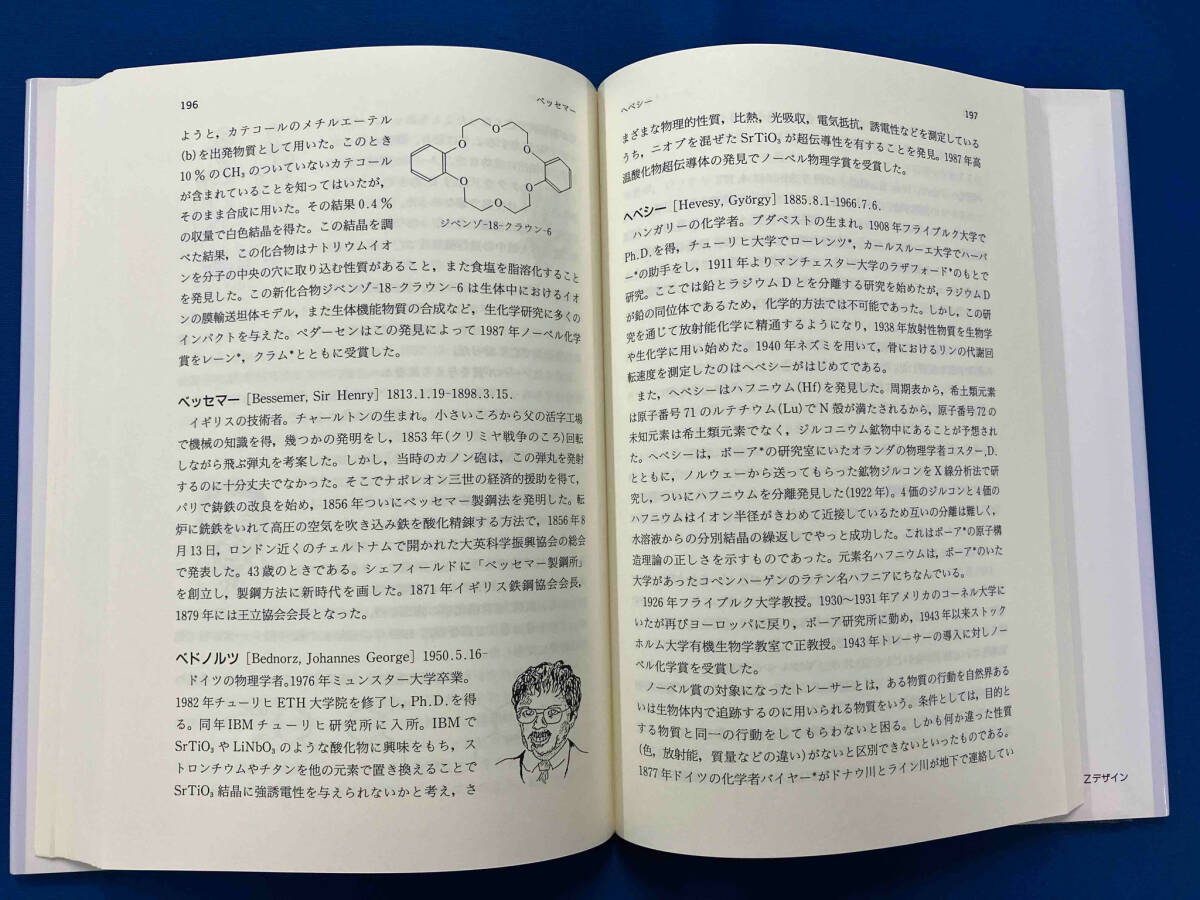 196
ベッセマー
ようと，カテコールのメチルエーテル
(b)を出発物質として用いた。このとき
10％のCH₃のついていないカテコール
が含まれていることを知ってはいたが，
そのまま合成に用いた。その結果0.4％
の収量で白色結晶を得た。この結晶を調
べた結果，この化合物はナトリウムイオ
ンを分子の中央の穴に取り込む性質があること，また食塩を脂溶化すること
を発見した。この新化合物ジベンゾ-18-クラウン-6は生体中におけるイオ
ンの膜輸送坦体モデル，また生体機能物質の合成など，生化学研究に多くの
インパクトを与えた。ペダーセンはこの発見によって1987年ノーベル化学
賞をレーン*，クラム*とともに受賞した。
O
O
O
O
O
O
ジベンゾ-18-クラウン-6
ベッセマー [Bessemer, Sir Henry] 1813.1.19-1898.3.15.
イギリスの技術者。チャールトンの生まれ。小さいころから父の活字工場
で機械の知識を得，幾つかの発明をし，1853年(クリミヤ戦争のころ)回転
しながら飛ぶ弾丸を考案した。しかし，当時のカノン砲は，この弾丸を発射
するのに十分丈夫でなかった。そこでナポレオン三世の経済的援助を得て，
パリで鋳鉄の改良を始め，1856年ついにベッセマー製鋼法を発明した。転
炉に銑鉄をいれて高圧の空気を吹き込み鉄を酸化精錬する方法で，1856年8
月13日，ロンドン近くのチェルトナムで開かれた大英科学振興協会の総会
で発表した。43歳のときである。シェフィールドに「ベッセマー製鋼所」
を創立し，製鋼方法に新時代を画した。1871年イギリス鉄鋼協会会長，
1879年には王立協会会長となった。
ベドノルツ [Bednorz, Johannes George] 1950.5.16-
ドイツの物理学者。1976年ミュンスター大学卒業。
1982年チューリヒETH大学院を修了し，Ph.D.を得
る。同年IBMチューリヒ研究所に入所。IBMで
SrTiO₃やLiNbO₃のような酸化物に興味をもち，ス
トロンチウムやチタンを他の元素で置き換えることで
SrTiO₃結晶に強誘電性を与えられないかと考え，さ
ヘベシー
197
まざまな物理的性質，比熱，光吸収，電気抵抗，誘電性などを測定している
うち，ニオブを混ぜたSrTiO₃が超伝導性を有することを発見。1987年高
温酸化物超伝導体の発見でノーベル物理学賞を受賞した。
ヘベシー [Hevesy, György] 1885.8.1-1966.7.6.
ハンガリーの化学者。ブダペストの生まれ。1908年フライブルク大学で
Ph.D.を得，チューリヒ大学でローレンツ*，カールスルーエ大学でハーバ
ー*の助手をし，1911年よりマンチェスター大学のラザフォード*のもとで
研究。ここでは鉛とラジウムDとを分離する研究を始めたが，ラジウムD
が鉛の同位体であるため，化学的方法では不可能であった。しかし，この研
究を通じて放射能化学に精通するようになり，1938年放射性物質を生物学
や生化学に用い始めた。1940年ネズミを用いて，骨におけるリンの代謝回
転速度を測定したのはヘベシーがはじめてである。
また，ヘベシーはハフニウム(Hf)を発見した。周期表から，希土類元素
は原子番号71のルテチウム(Lu)でN殻が満たされるから，原子番号72の
未知元素は希土類元素でなく，ジルコニウム鉱物中にあることが予想され
た。ヘベシーは，ボーア*の研究室にいたオランダの物理学者コスター，D.
とともに，ノルウェーから送ってもらった鉱物ジルコンをX線分析法で研
究し，ついにハフニウムを分離発見した(1922年)。4価のジルコンと4価の
ハフニウムはイオン半径がきわめて近接しているため互いの分離は難しく，
水溶液からの分別結晶の繰返しでやっと成功した。これはボーア*の原子構
造理論の正しさを示すものであった。元素名ハフニウムは，ボーア*のいた
大学があったコペンハーゲンのラテン名ハフニアにちなんでいる。
1926年フライブルク大学教授。1930～1931年アメリカのコーネル大学に
いたが再びヨーロッパに戻り，ボーア研究所に勤め，1943年以来ストック
ホルム大学有機生物学教室で正教授。1943年トレーサーの導入に対しノー
ベル化学賞を受賞した。
ノーベル賞の対象になったトレーサーとは，ある物質の行動を自然界ある
いは生物体内で追跡するのに用いられる物質をいう。条件としては，目的と
する物質と同一の行動をしてもらわないと困る。しかも何か違った性質
(色，放射能，質量などの違い)がないと区別できないといったものである。
1877年ドイツの化学者バイヤー*がドナウ川とライン川が地下で連絡してい
Zデザイン